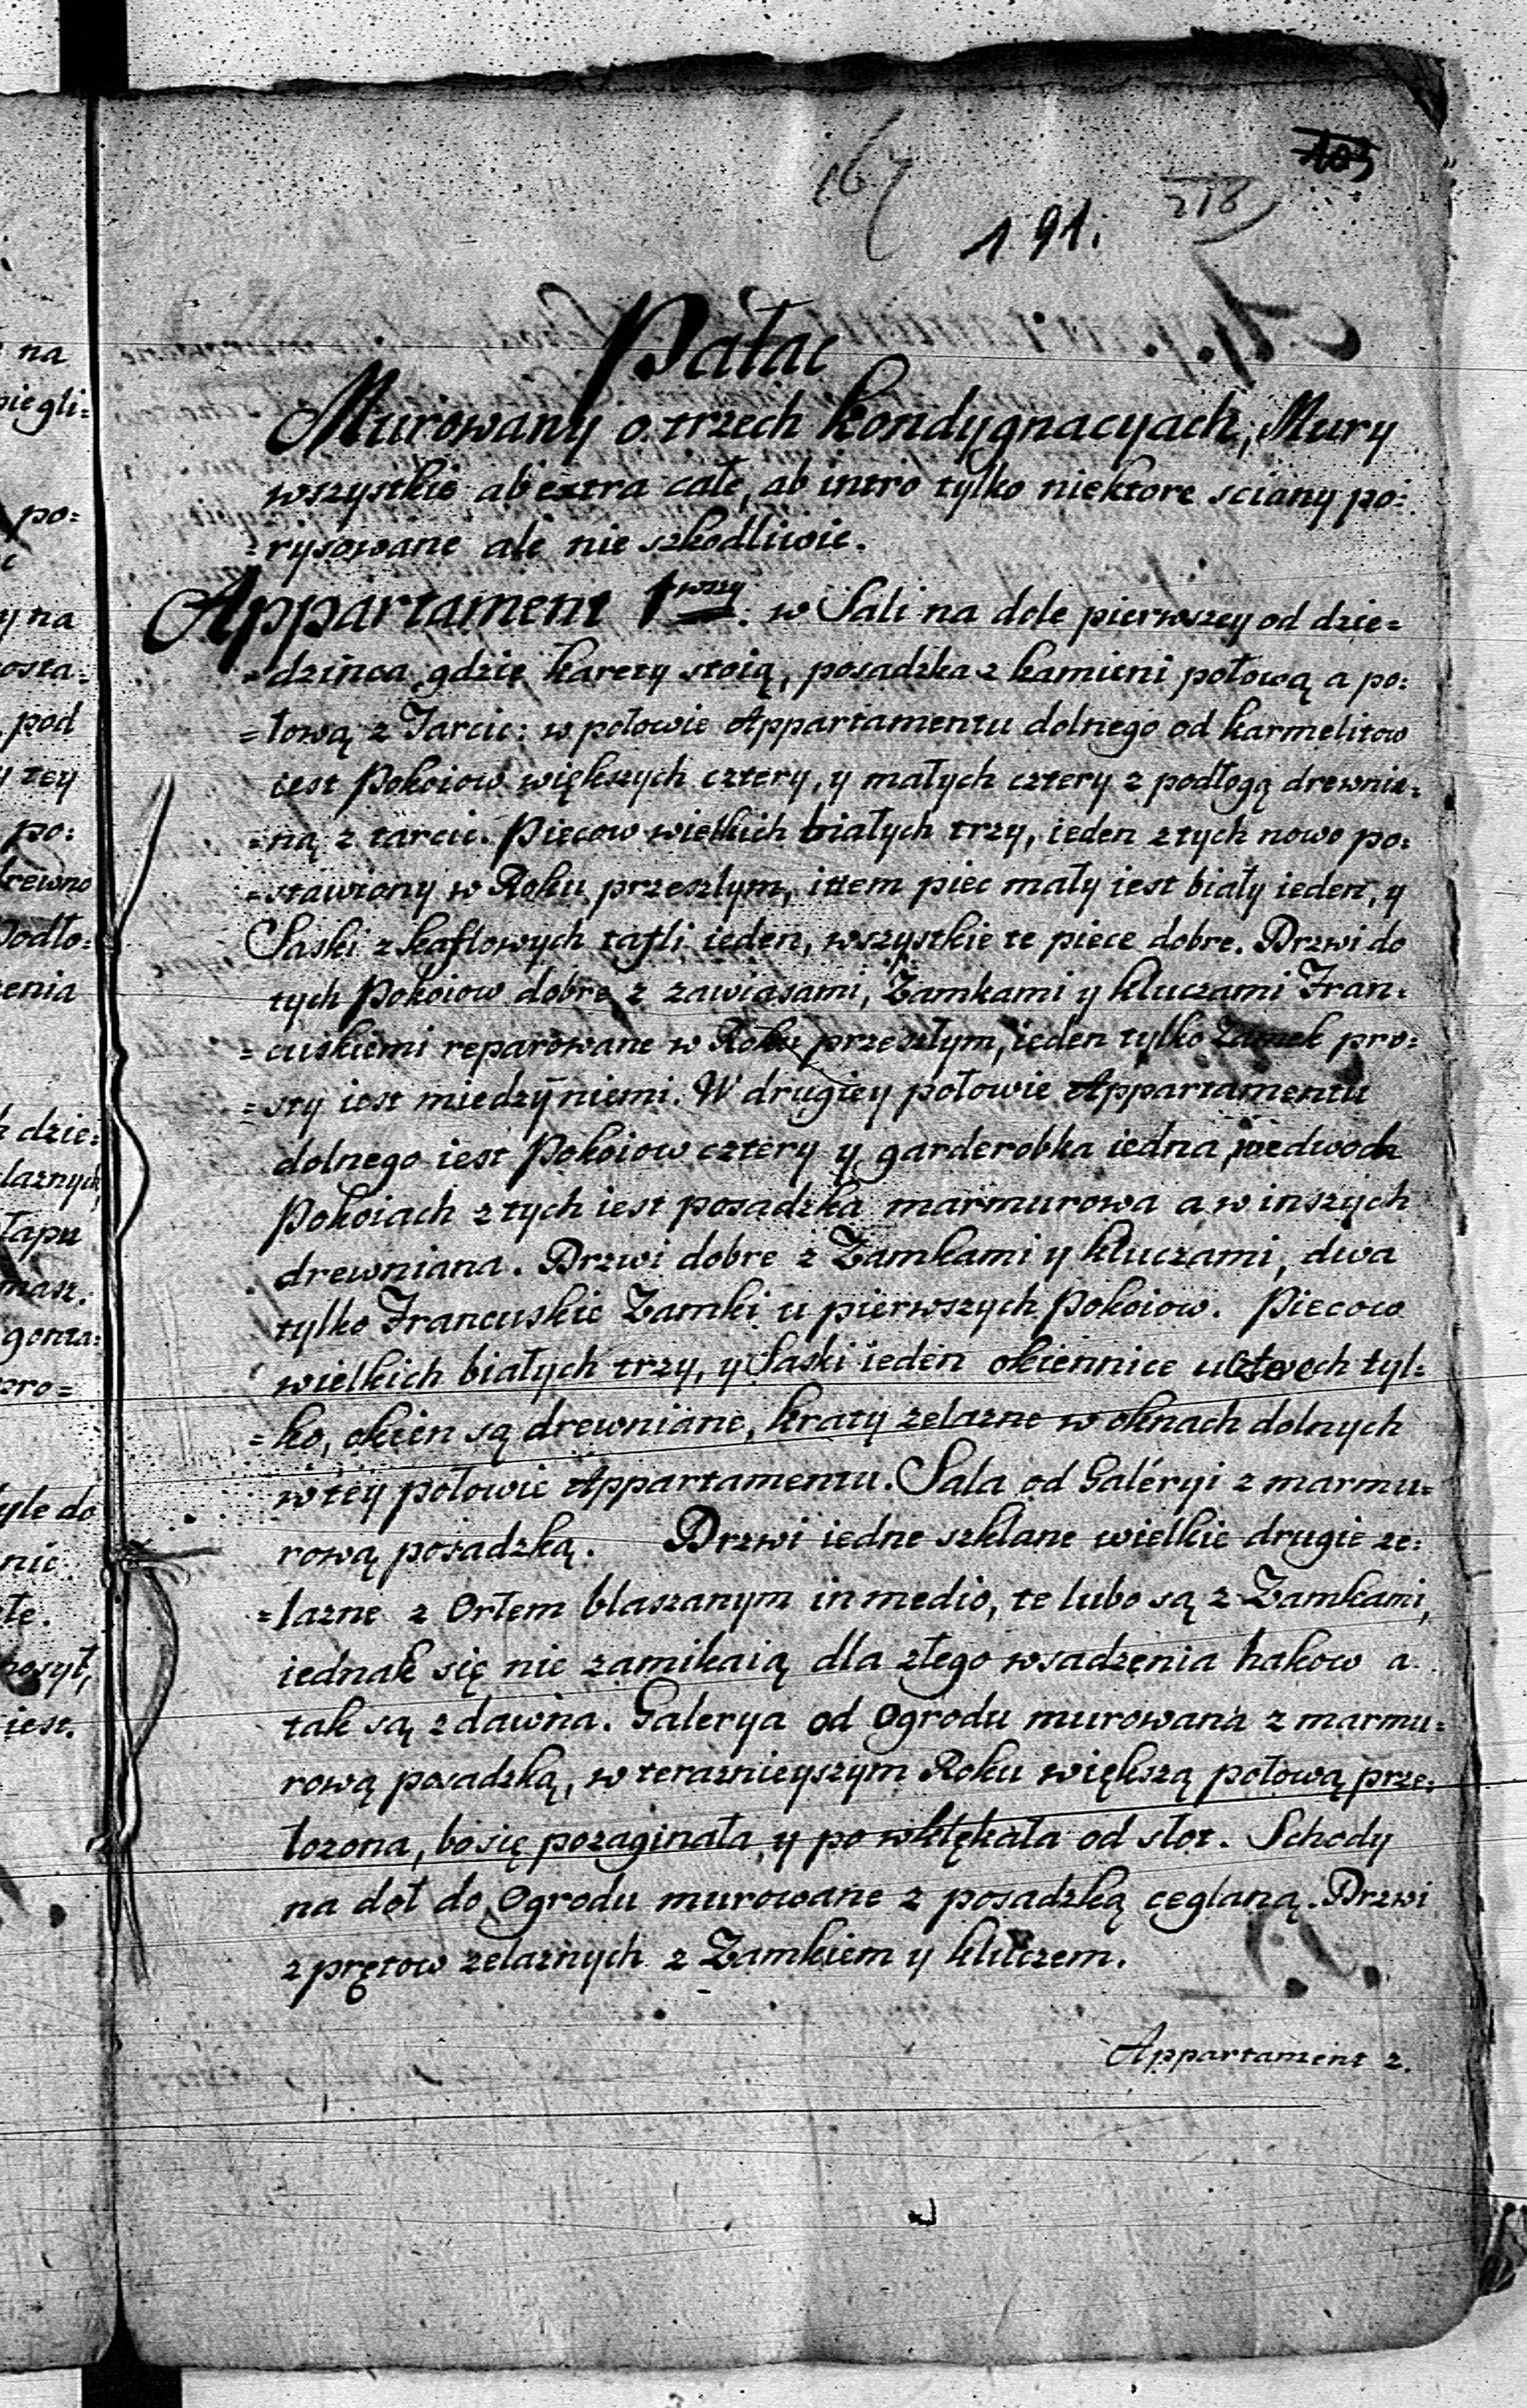 103
167
218
191.
Pałac
Murowany o trzech kondygnacyach, Mury
wszystkie ab extra całe, ab intro tylko niektore sciany po=
=rysowane ale nie szkodliwie.
Appartament 1wszy. w Sali na dole pierwszey od dzie=
=dzinca gdzie karety stoią, posadzka z kamieni połową a po=
=łową z Tarcic: w połowie Appartamentu dolnego od karmelitow
iest Pokoiow większych cztery, y małych cztery z podłogą drewnia=
=ną z tarcic. Piecow wielkich białych trzy, ieden z tych nowo po=
=stawiony w Roku przeszłym, item piec mały iest biały ieden, y
Saski z kaflowych tafli ieden, wszystkie te piece dobre. Drzwi do
tych Pokoiow dobre z zawiasami, Zamkami y kluczami Fran=
=cuskiemi reparowane w Roku przeszłym, ieden tylko Zamek pro=
=sty iest miedzy niemi. W drugiey połowie Appartamentu
dolnego iest Pokoiow cztery y garderobka iedna, we dwoch
Pokoiach z tych iest posadzka marmurowa a w inszych
drewniana. Drzwi dobre z Zamkami y kluczami, dwa
tylko Francuskie Zamki u pierwszych Pokoiow. Piecow
wielkich białych trzy, y Saski ieden okiennice u tyl=
=ko, okien są drewniane, kraty zelazne w oknach dolnych
w tey połowie Appartamentu. Sala od Galéryi z marmu=
rową posadzką. Drzwi iedne szklane wielkie drugie ze=
=lazne z Orłem blaszanym in medio, te lubo są z Zamkami,
iednak się nie zamikaią dla złego wsadzenia hakow a
tak są z dawna. Galerya od Ogrodu murowana z marmu=
rową posadzką, w teraznieyszym Roku większą połową prze=
łozona, bo się pozaginała y po od słot. Schody
na doł do Ogrodu murowane z posadzką ceglaną. Drzwi
z prętow zelaznych z Zamkiem y kluczem.
Appartament 2.
na
po=
y na
osta=
pod
y tey
po:
drewno
Podło=
enia
dzie=
laznych
gonta=
pro=
iest.